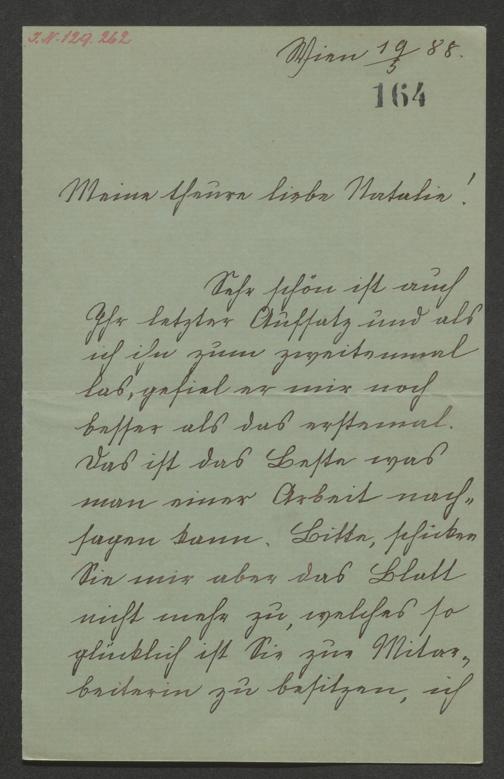 J.N. 129.262
Wien 19/5 88.
164
Meine theure liebe Natalie!
Sehr schön ist auch
Ihr letzter Aufsatz und als
ich ihn zum zweitenmal
las, gefiel er mir noch
besser als das erstemal.
Das ist das Beste was
man einer Arbeit nach-
sagen kann. Bitte, schicken
Sie mir aber das Blatt
nicht mehr zu, welches so
glücklich ist Sie zur Mitar-
beiterin zu besitzen, ich